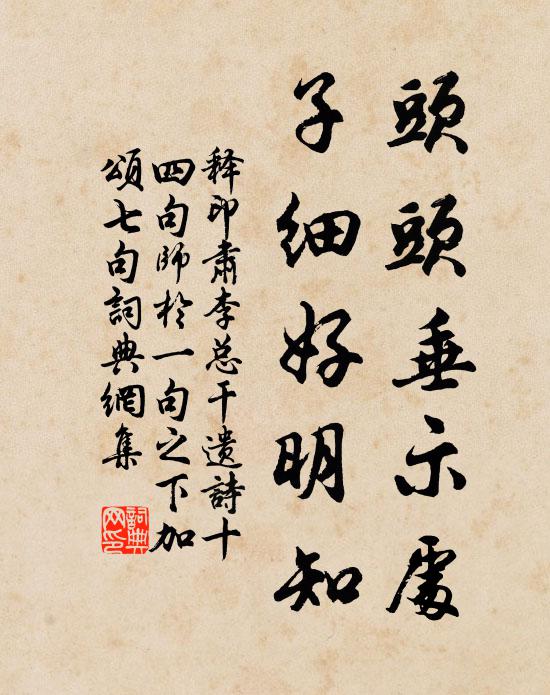 頭頭垂示處
子細好明知
释印肅李总干遗詩十
四句師於一句之下加
頌七句詞典網集
詞典
网印